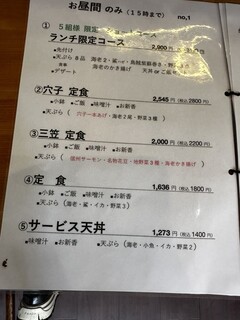 お昼間のみ(15時まで) no,1
① 5組様 限定
ランチ限定コース 2,900円
●先付け
●天ぷら8品 海老2・鯊
食事 海老のかき揚げ 天丼 or ご飯
●デザート
②穴子 定食 2,545円(税込2800円)
●小鉢 ●ご飯 ●味噌汁 ●お新香
●天ぷら(穴子一本あげ・海老2尾・野菜3種)
③三笠 定食 2,000円(税込2200円)
●小鉢 ●ご飯 ●味噌汁 ●お新香
●天ぷら(信州サーモン・名物花豆・地野菜3種・海老かき揚げ)
④定 食 1,636円(税込1800円)
●小鉢 ●ご飯 ●味噌汁 ●お新香
●天ぷら(海老・鯊・イカ・野菜3)
⑤サービス天丼 1,273円(税込1400円)
●味噌汁 ●お新香 ●天ぷら(海老・小魚・イカ・野菜2)